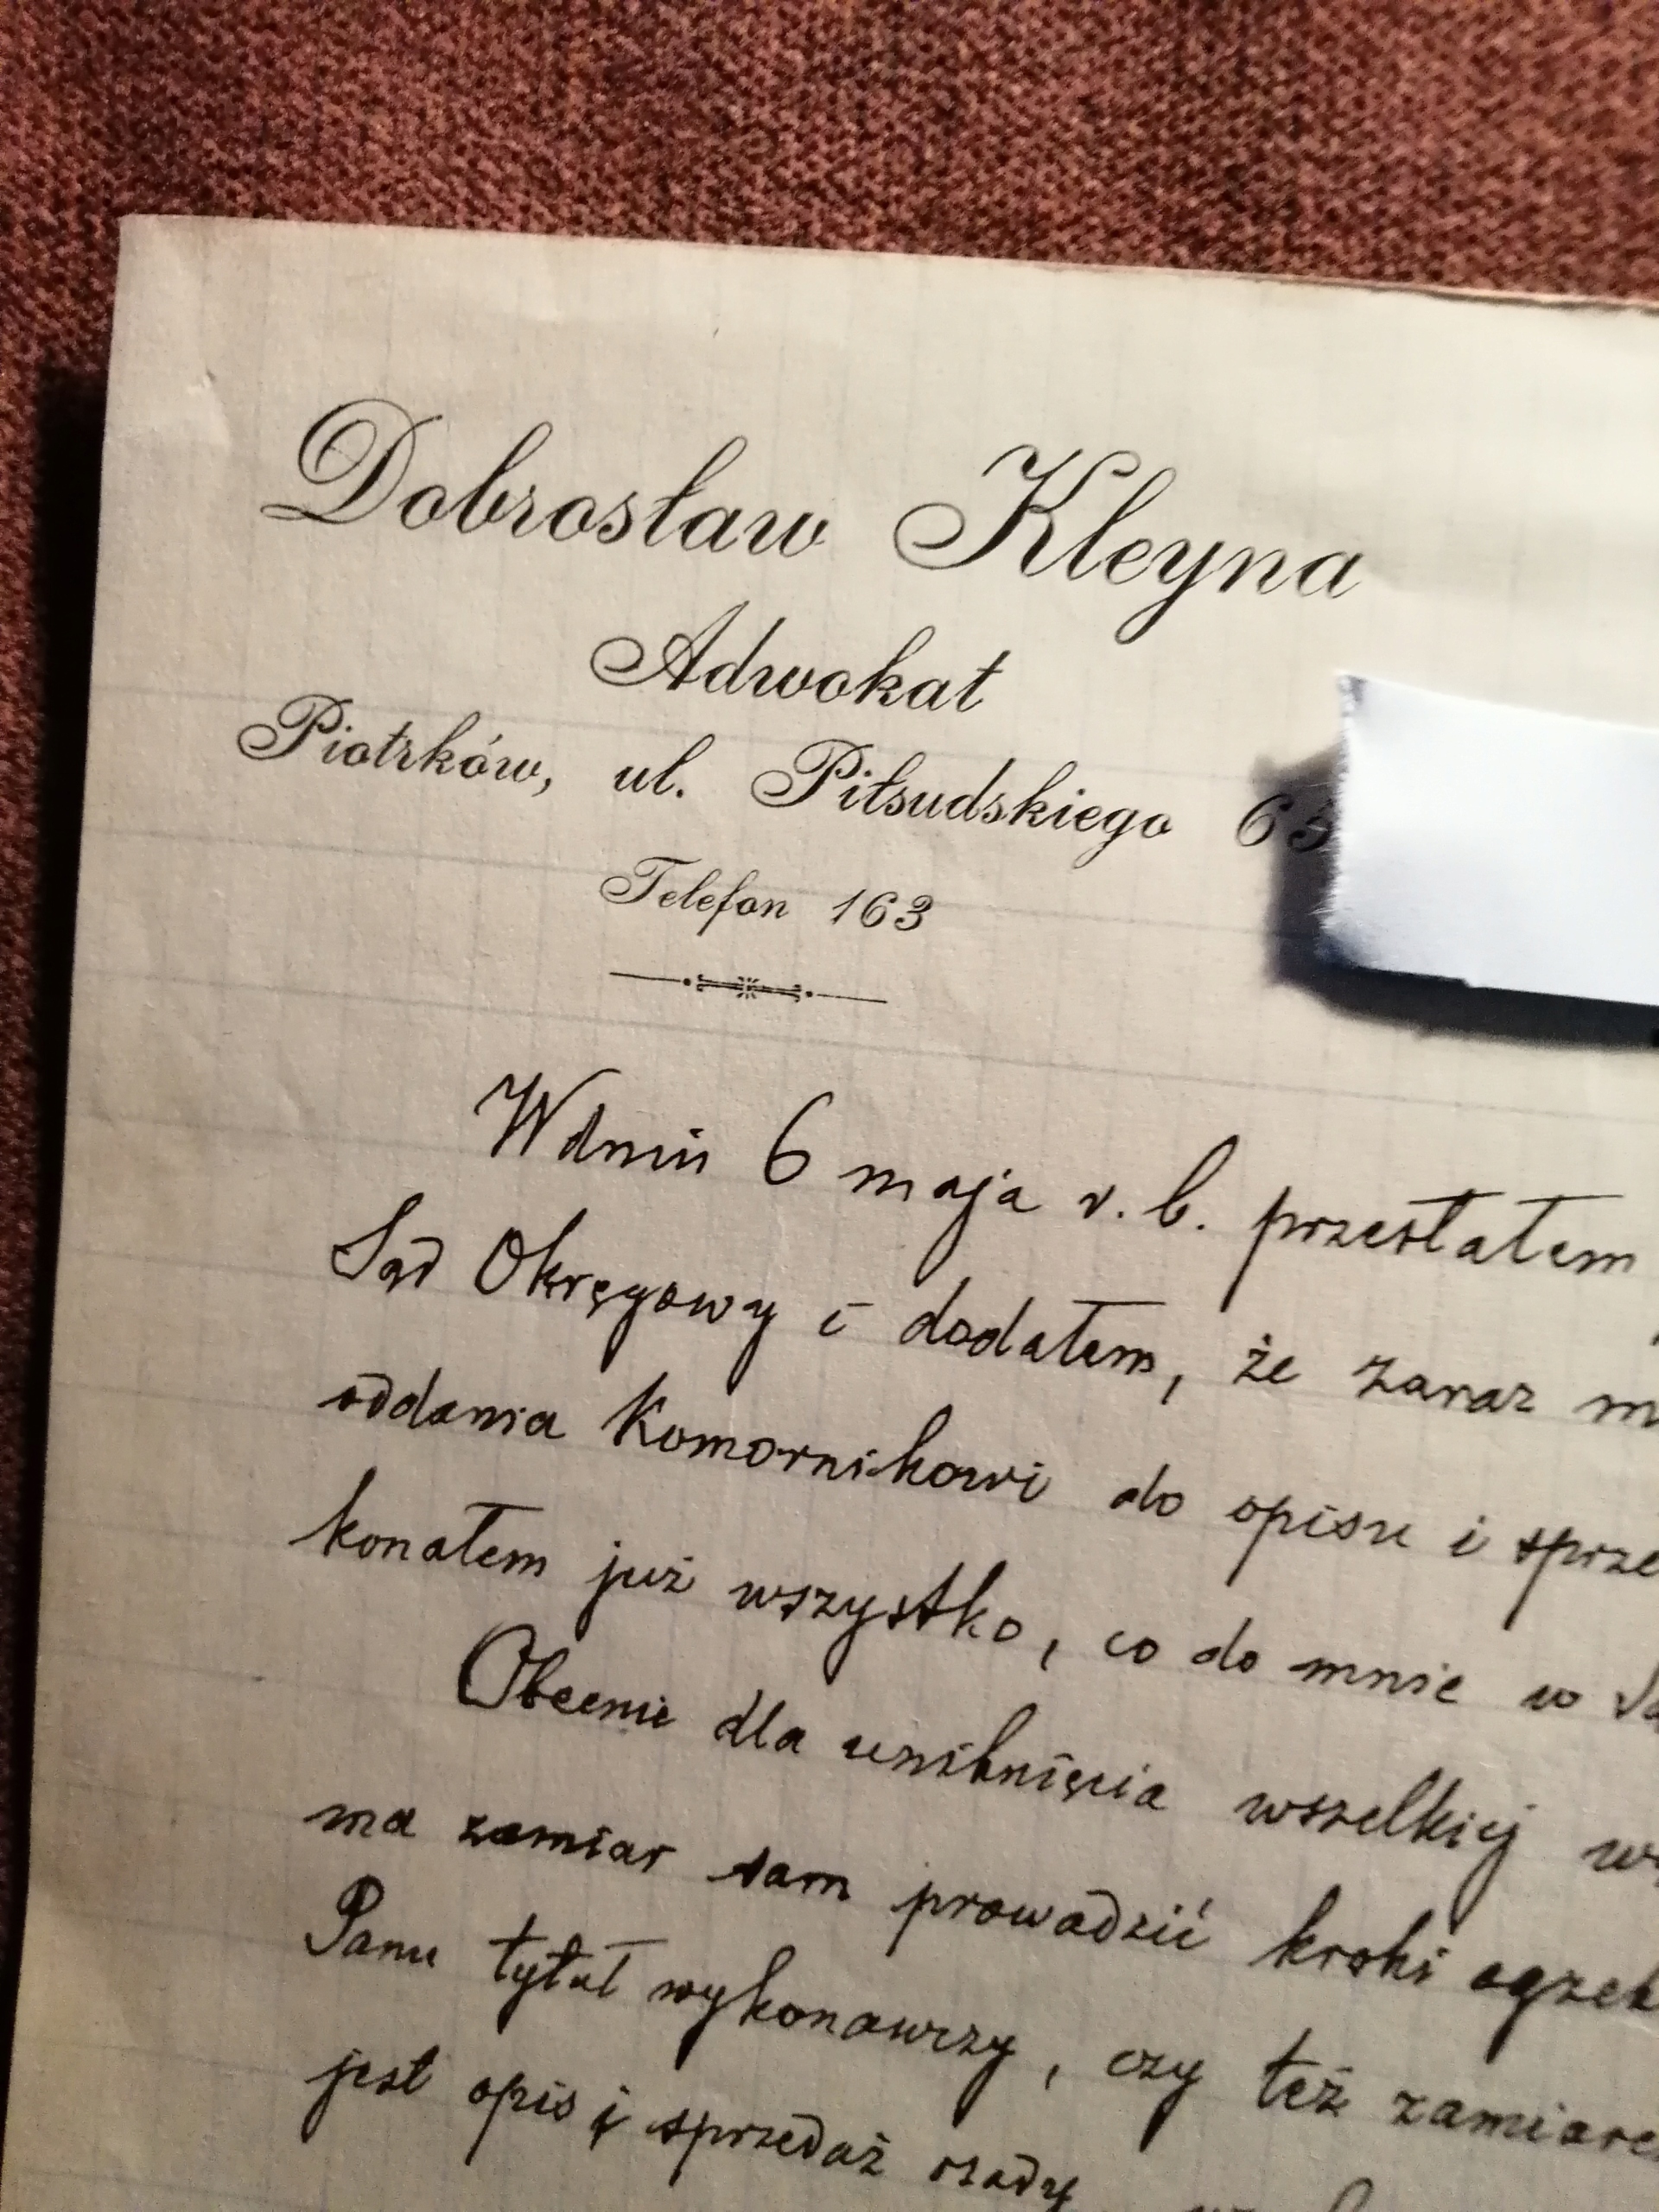 Dobrosław Kleyna
Adwokat
Piotrków, ul. Piłsudskiego 63
Telefon 163
W dniu 6 maja r. b. przesłałem
Sąd Okręgowy i dodałem, że zaraz m
oddania Komornikowi do opisu i sprze
konałem już wszystko, co do mnie w
Obecnie dla uniknięcia wszelkiej
ma zamiar sam prowadzić kroki egzek
Panu tytuł wykonawczy, czy też zamiare
jest opis i sprzedaż osady